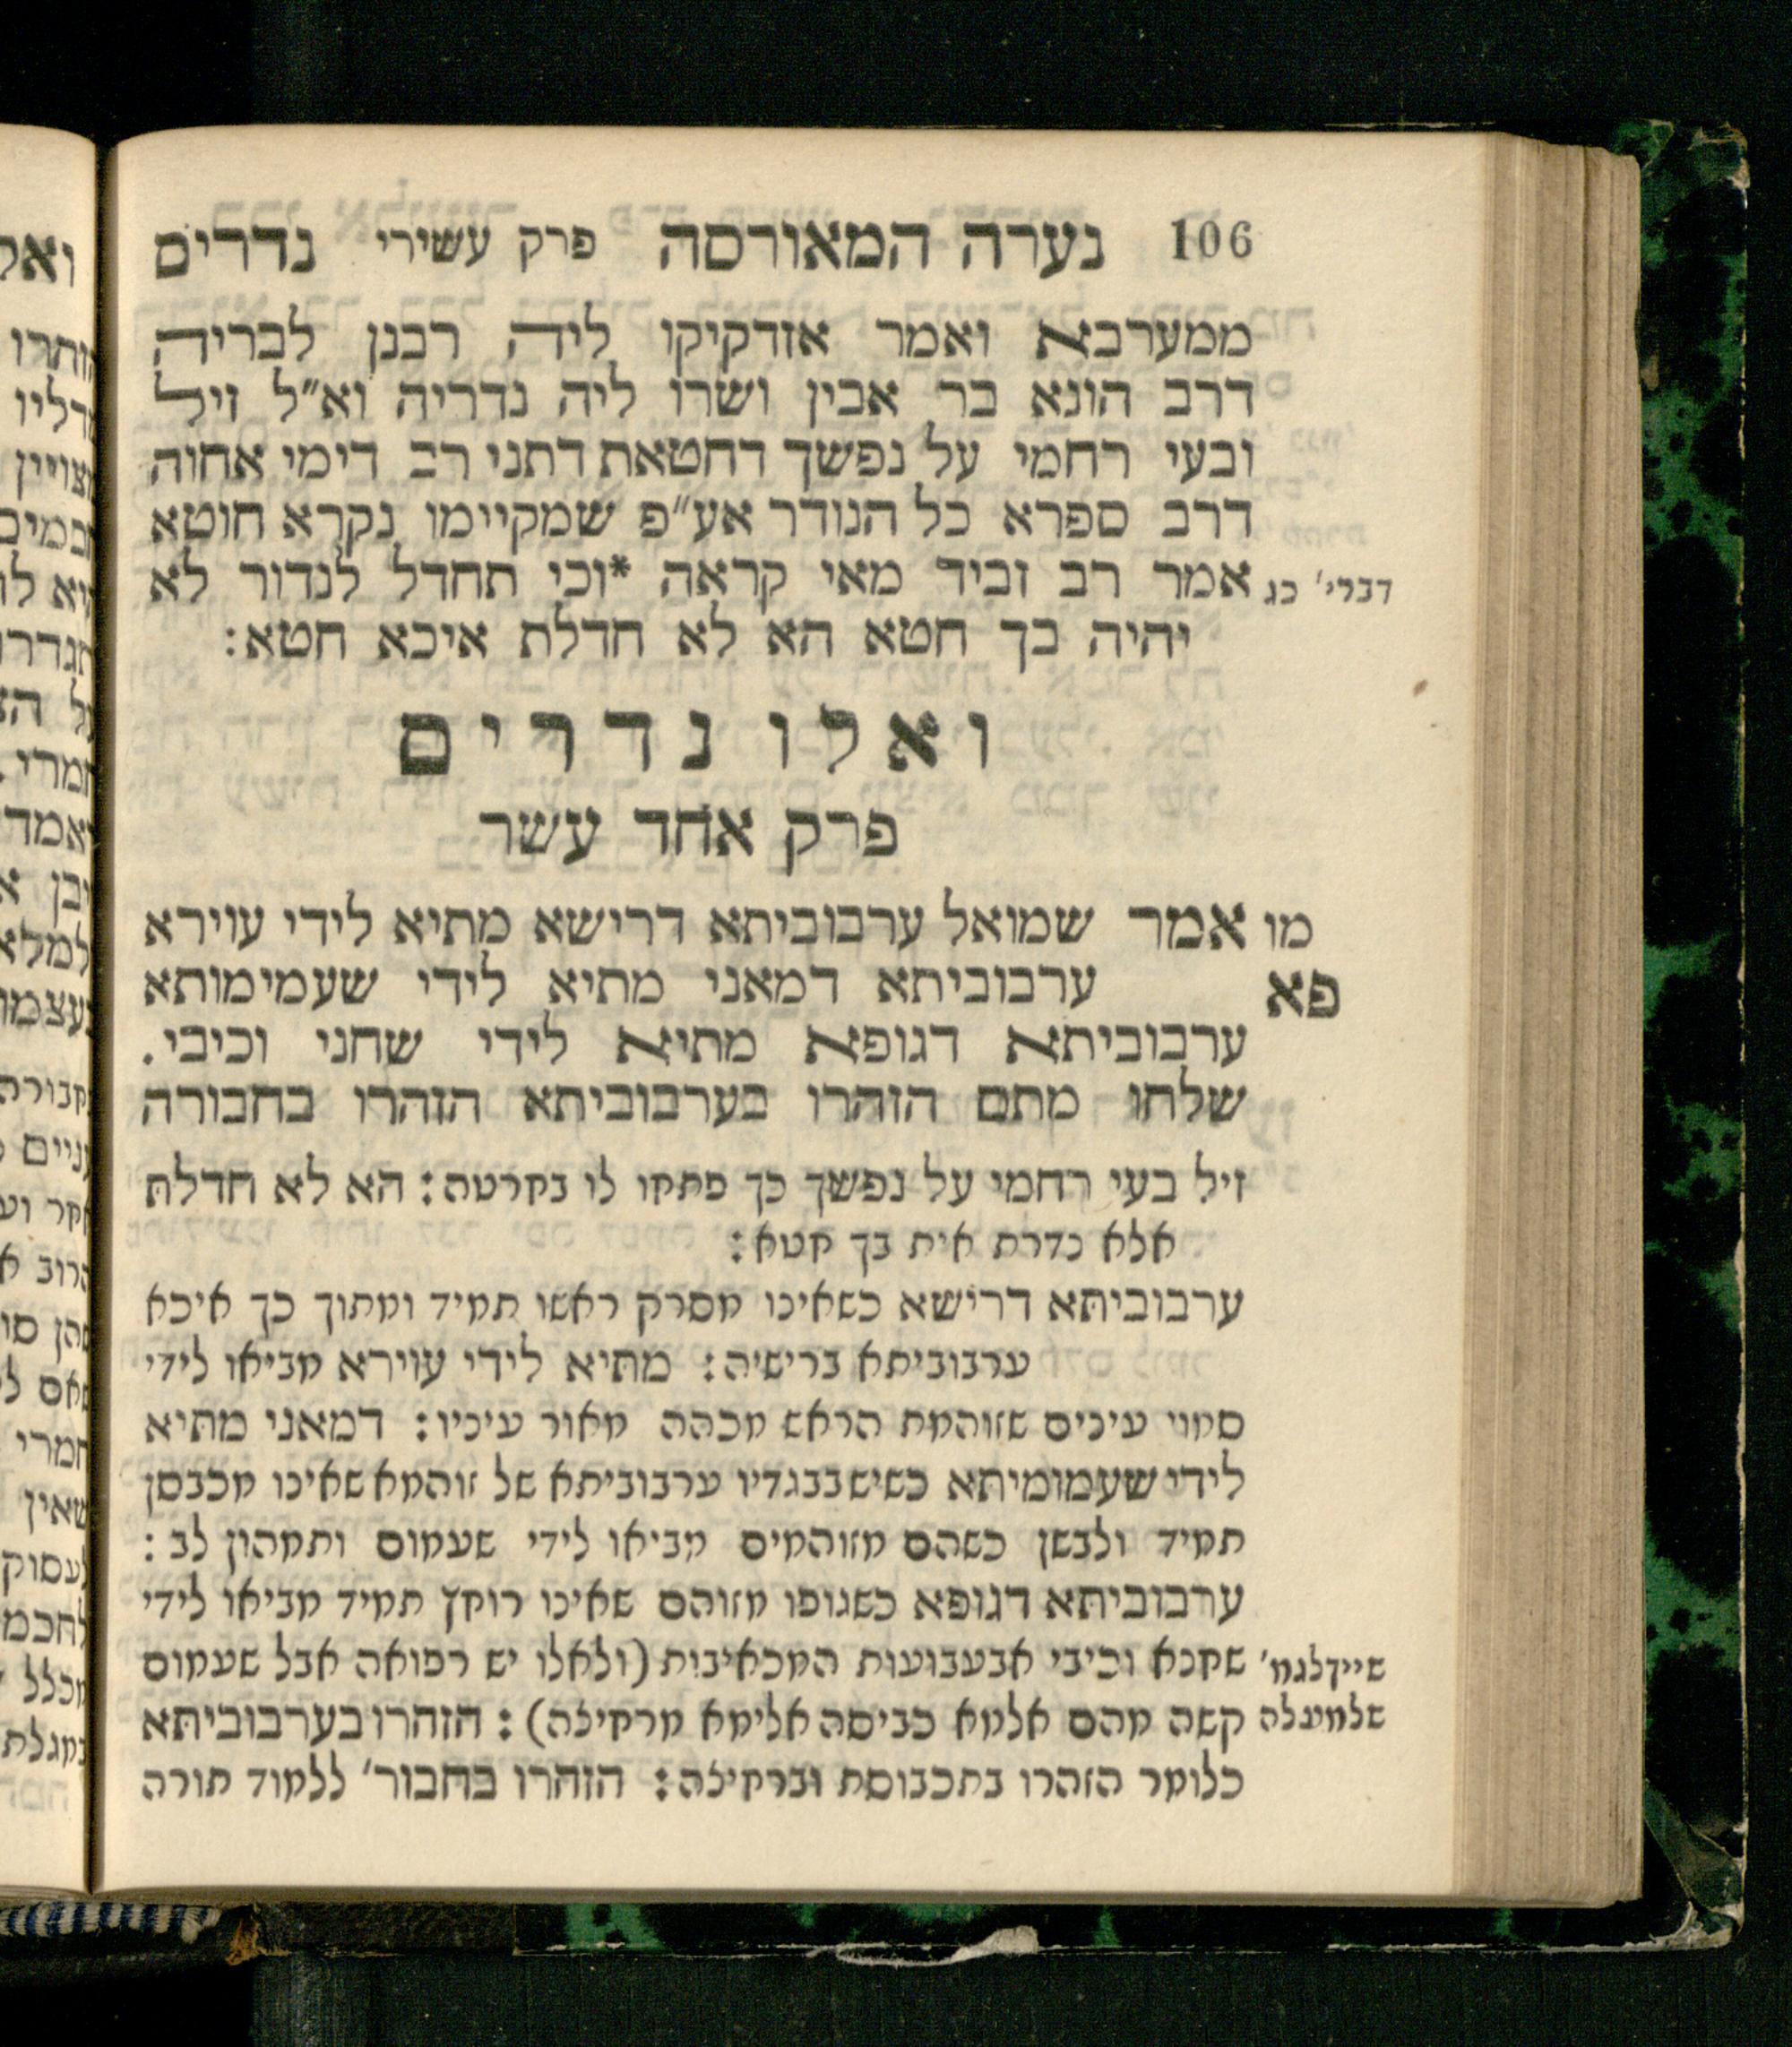 106 נערה המאורסה פרק עשירי נדרים
ממערבא ואמר אזדקיקו ליה רבנן לבריה
דרב הונא בר אבין ושרו ליה נדריה וא״ל זיל
ובעי רחמי על נפשך דחטאת דתני רב דימי אחוה
דרב ספרא כל הנודר אע״פ שמקיימו נקרא חוטא
דברי׳ כג אמר רב זביד מאי קראה *וכי תחדל לנדור לא
יהיה בך חטא הא לא חדלת איכא חטא:
ואלו נדרים
פרק אחד עשר
מו אמר שמואל ערבוביתא דרישא מתיא לידי עוירא
פא ערבוביתא דמאני מתיא לידי שעמימותא
ערבוביתא דגופא מתיא לידי שחני וכיבי.
שלחו מתם הזהרו בערבוביתא הזהרו בחבורה
זיל בעי רחמי על נפשך כך פתקו לו בקרטה: הא לא חדלת
אלא נדרת אית בך חטא:
ערבוביתא דרישא כשאינו מסרק ראשו תמיד ומתוך כך איכא
ערבוביתא ברישיה: מתיא לידי עוירא מביאו לידי
סמוי עינים שזוהמת הראש מכהה מאור עיניו: דמאני מתיא
לידי שעמומיתא כשיש בבגדיו ערבוביתא של זוהמא שאינו מכבסן
תמיד ולבשן כשהם מזוהמים מביאו לידי שעמום ותמהון לב:
ערבוביתא דגופא כשגופו מזוהם שאינו רוחץ תמיד מביאו לידי
שיידלגמ׳ שחנא וכיבי אבעבועות המכאיבות (ולאלו יש רפואה אבל שעמום
שלמעלה קשה מהם אלמא כביסה אלימא מרחיצה): הזהרו בערבוביתא
כלומר הזהרו בתכבוסת וברחיצה: הזהרו בחבור׳ ללמוד תורה